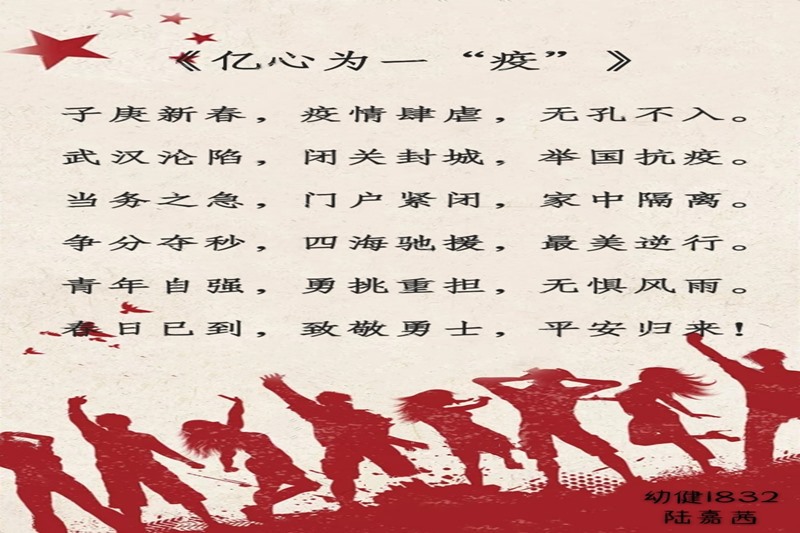 《亿心为一“疫”》
子庚新春，疫情肆虐，无孔不入。
武汉沦陷，闭关封城，举国抗疫。
当务之急，门户紧闭，家中隔离。
争分夺秒，四海驰援，最美逆行。
青年自强，勇挑重担，无惧风雨。
春日已到，致敬勇士，平安归来！
幼健1832
陆嘉茜